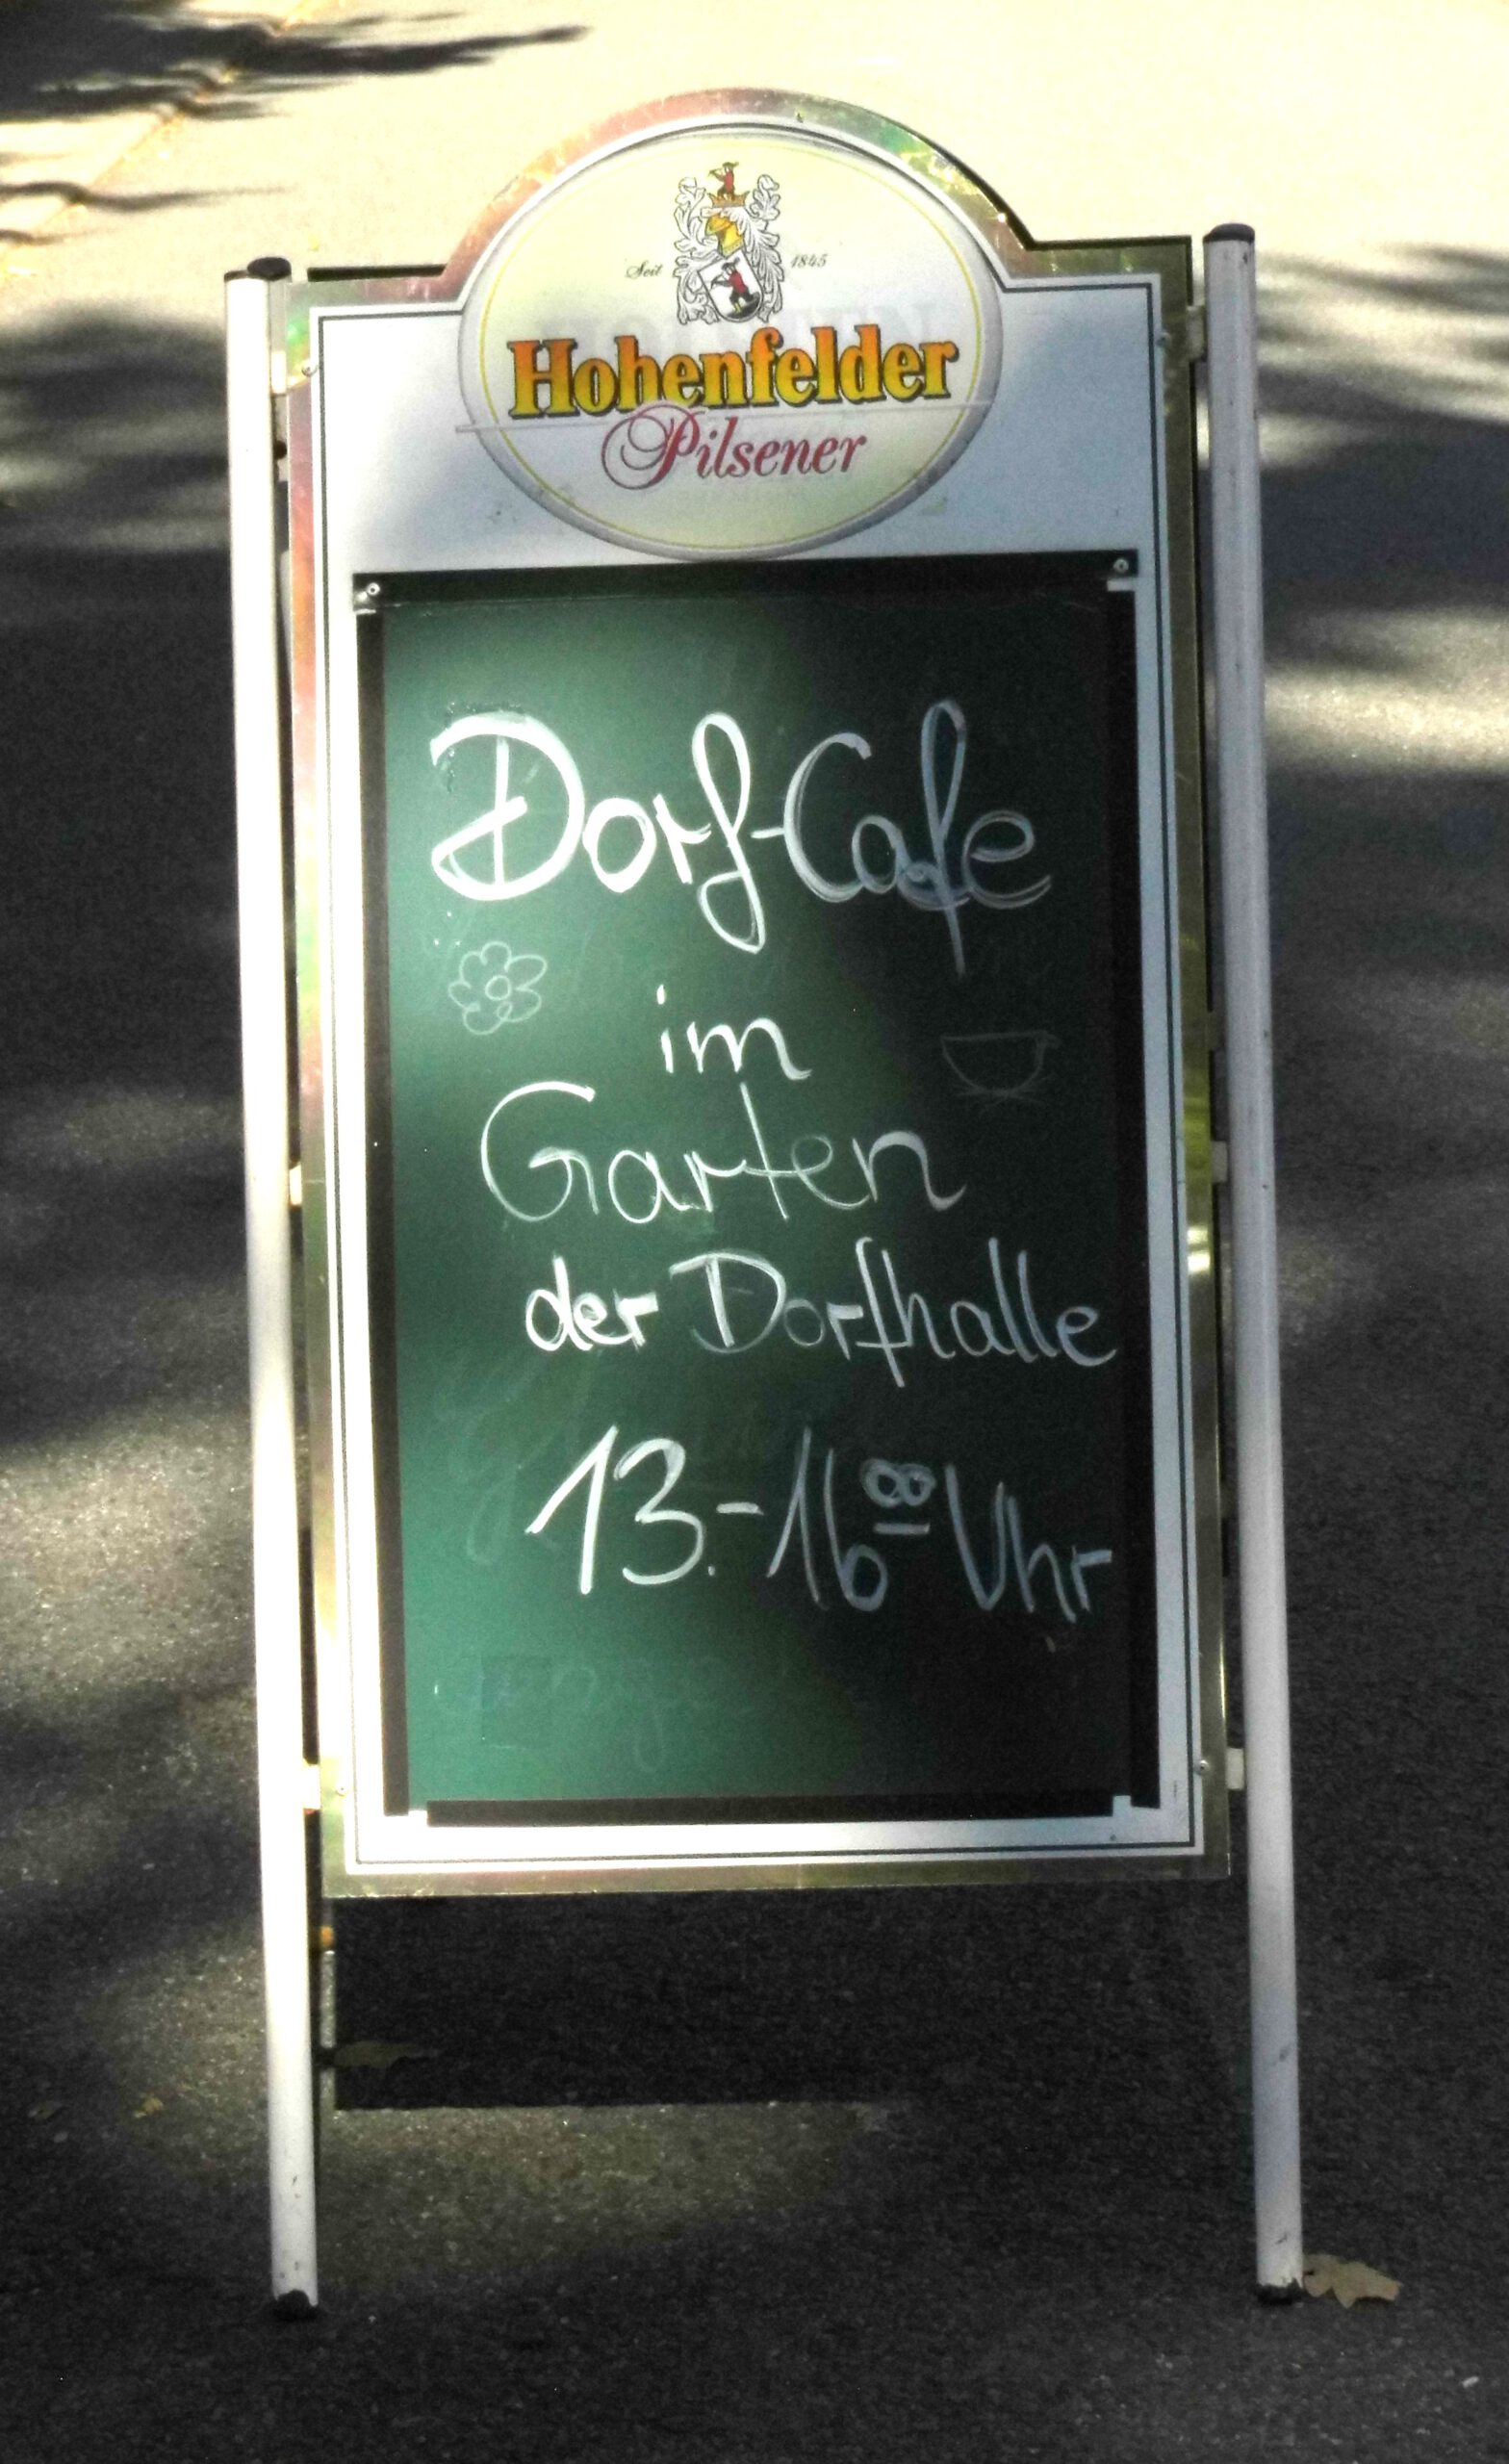 Seit 1845
Hohenfelder
Pilsener
Dorf-Cafe
im
Garten
der Dorfhalle
13.-1600 Uhr